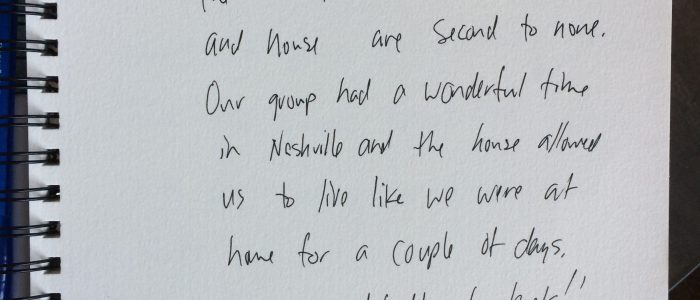 and house are second to none.
Our group had a wonderful time
in Nashville and the house allowed
us to live like we were at
home for a couple of days.